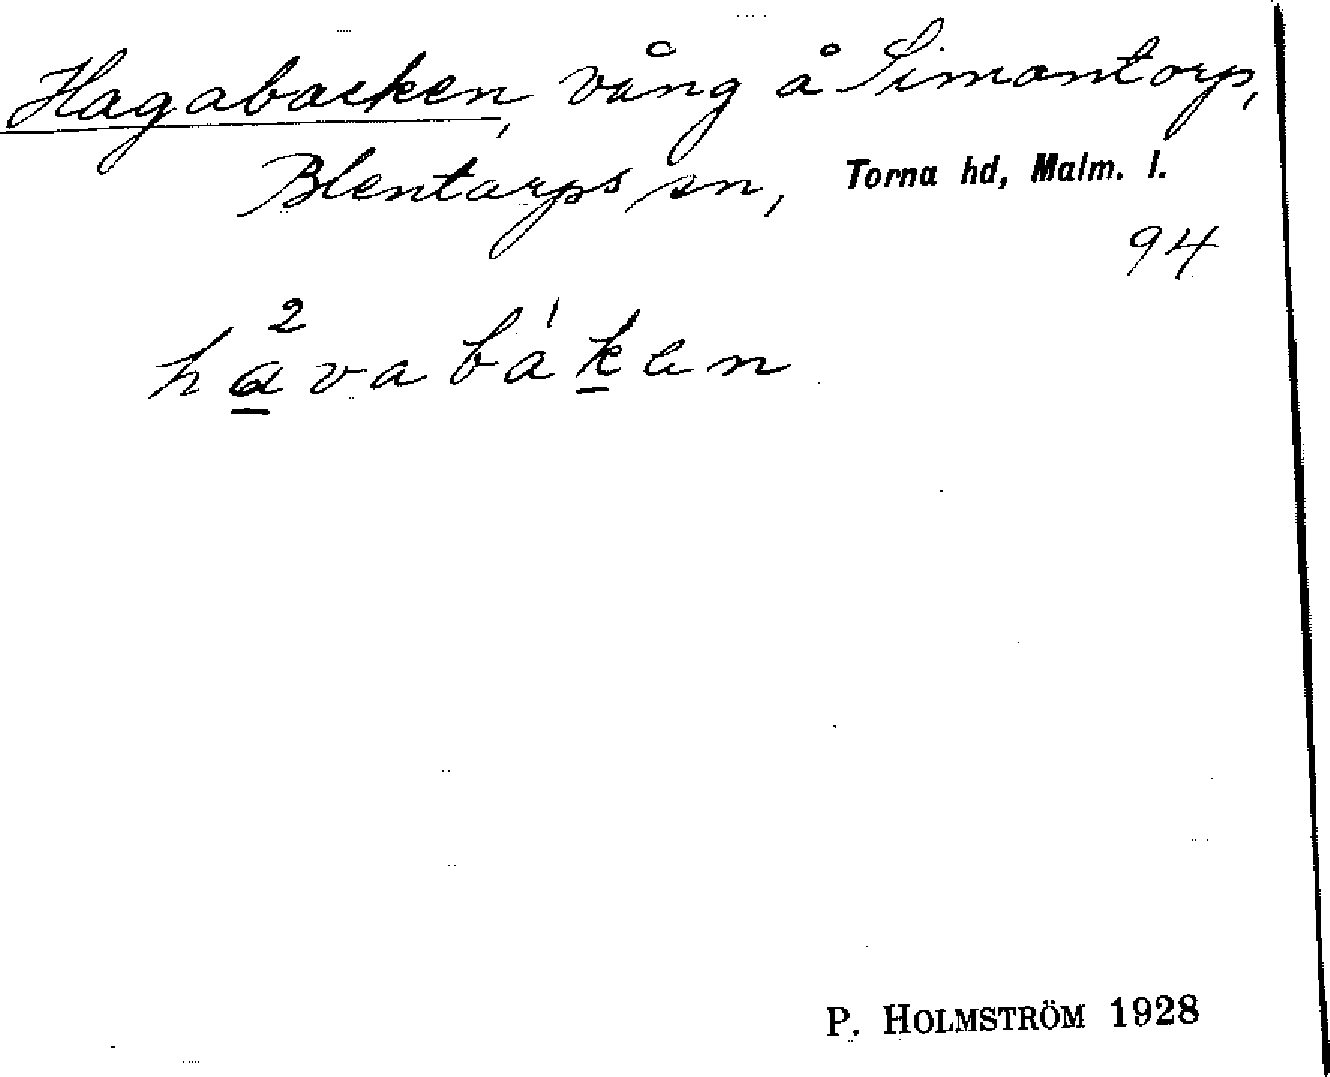 Hagabacken, vång å Simontorp,
Blentarps sn, Torna hd, Malm. l.
94
havabáken
P. HOLMSTRÖM 1928